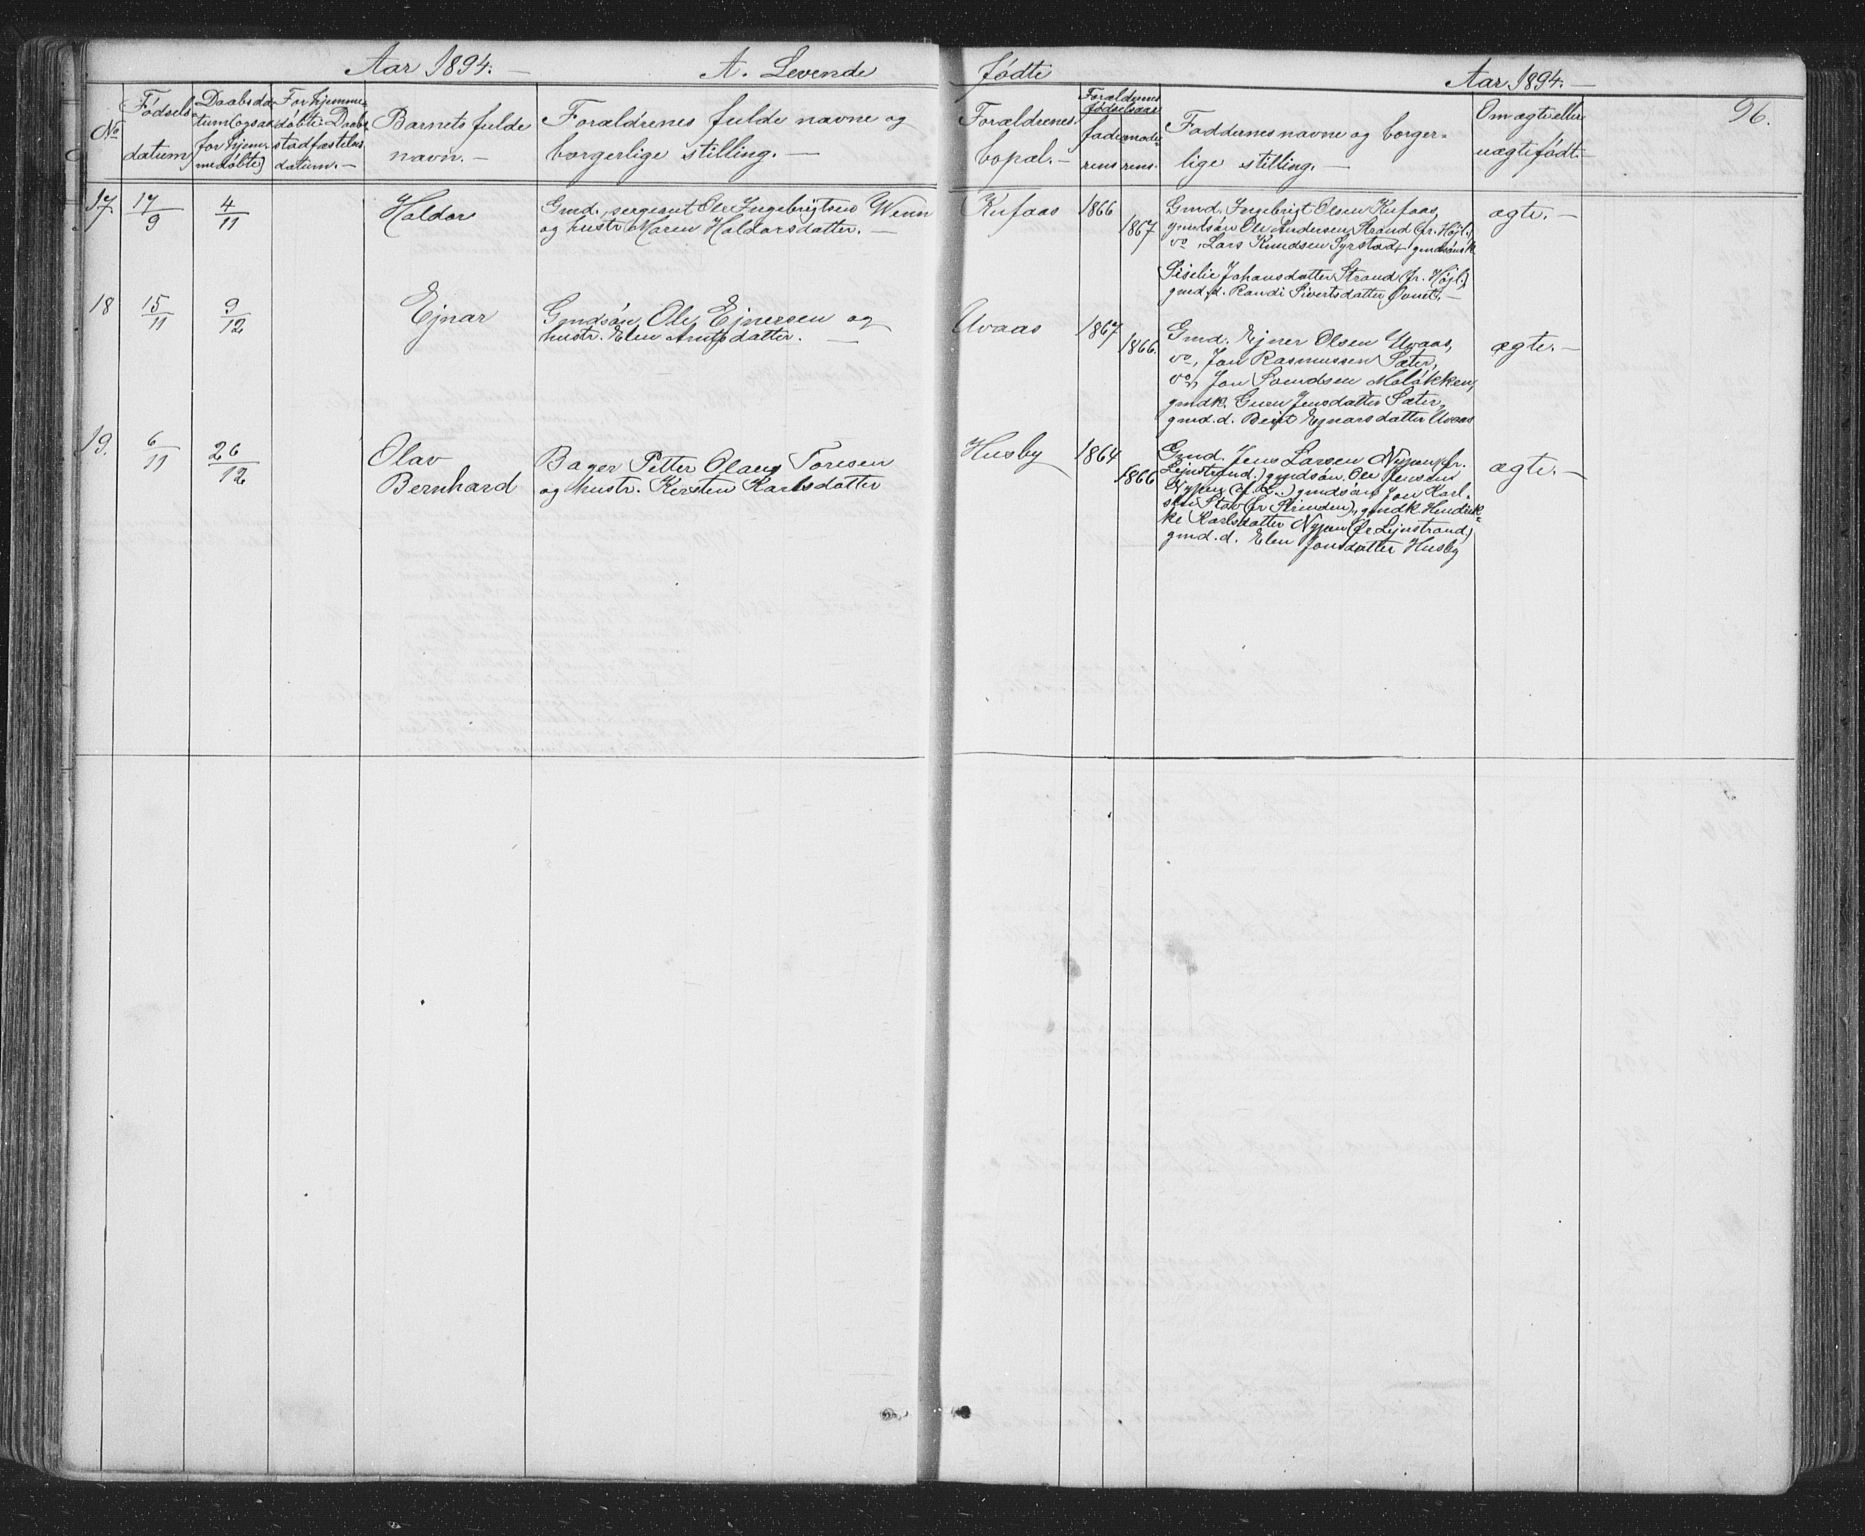 Aar 1894. —
A. Levende
fødte
Aar 1894. —
96.
No
Fødsels
datum
Daabsda-
tum (ogsaa
for hjem-
medøbte)
For hjemme-
døbte: Daabs
stadfæstelses
datum. —
Barnets fulde
navn. —
Forældrenes fulde navne og
borgerlige stilling. —
Forældrenes
bopæl. —
Forældrenes
fødselsaar
fade-
rens
mode-
rens.
Faddernes navne og borger-
lige stilling. —
Om ægte eller
uægte født. —
17.
17/9
4/11
Haldor
Gmd., sergeant Ole Ingebrigtsen Wenn
og hustr. Maren Haldorsdatter. —
Kufaas
1866
1867
Gmd. Ingebrigt Olsen Kufaas,
gmdsøn Ole Andersen Strand (fr. Højl.)
do, Lars Knudsen Syrstad, gmdsønsk
Siselie Johansdatter Strand (fr. Højl.)
gmd.d. Randi Sivertsdatter —
ægte. —
18
15/11
9/12
Ejnar
Gmdsøn Ole Ejnersen og
hustr. Elen Arntsdatter. —
Uvaas
1867
1866.
Gmd. Ejner Olsen Uvaas,
do, Jon Rasmussen Sæter,
do, Jon Svendsen Moløkken,
gmdk. Guru Jensdatter Sæter,
gmd.d. Berit Ejnarsdatter Uvaas
ægte. —
19.
6/11
26/12
Olav
Bernhard
Bager Petter Olaus Toresen
og hustr. Kirsten Karlsdatter
Husby
1864
1866
Gmd. Jens Larsen Nypan (fr.
Lejnstrand.) gmdsøn Ole Jensen
Nypan (f. L.) gmdsøn Jon Karl-
sen Stav (fr Strinden), gmdk Hendrik-
ke Karlsdatter Nypan (fr Lejnstrand)
gmd.d. Elen Jonsdatter Husby
ægte. —